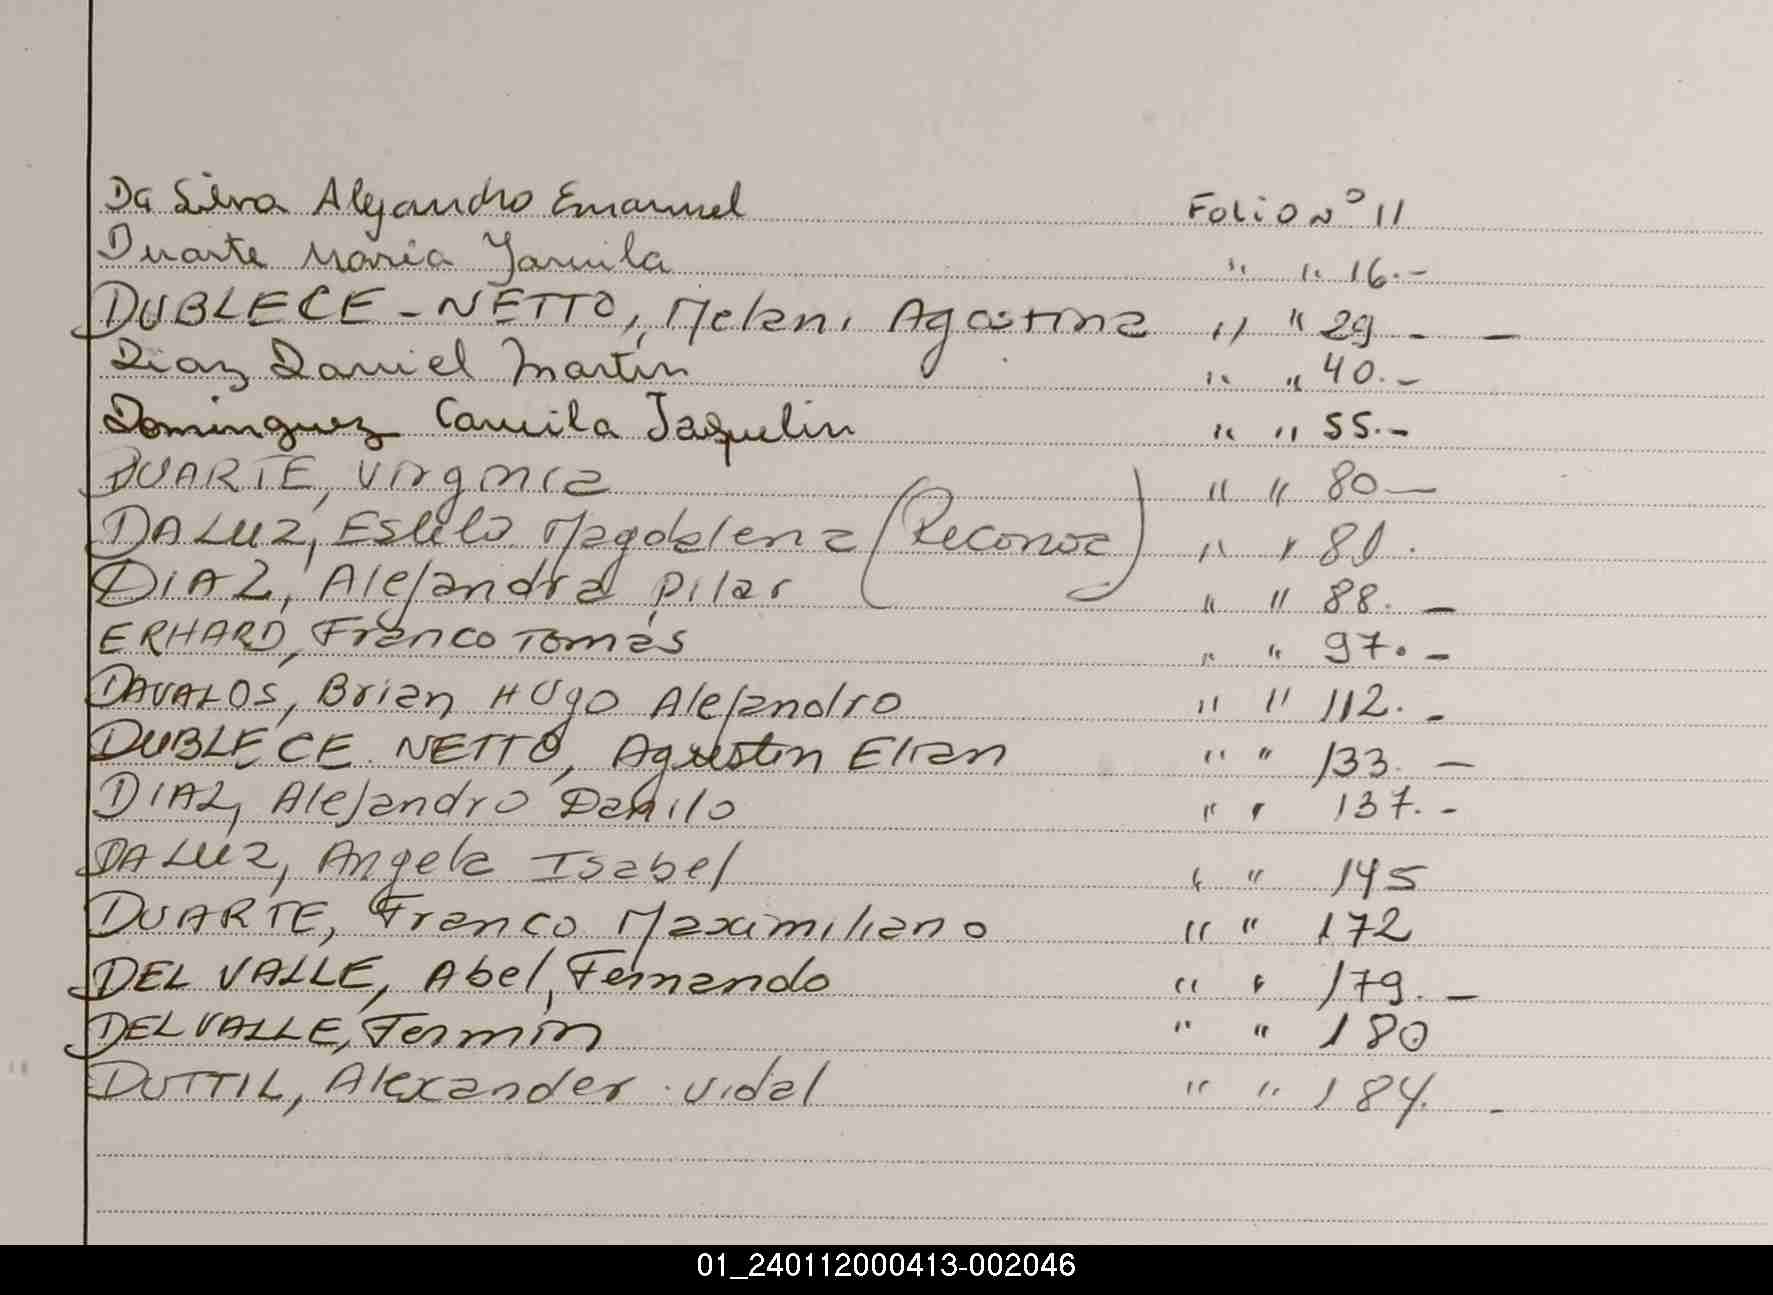 Da Silva Alejandro Emanuel Folio Nº 11
Duarte Maria Yamila " " 16.-
DUBLECE - NETTO, Melani Agostina " " 29 - -
Diaz Daniel Martin " " 40.-
Dominguez Camila Jaquelin " " 55.-
DUARTE, Virginia " " 80 -
DA LUZ, Estela Magdalena (Reconoc) " " 81.
DIAZ, Alejandra Pilar " " 88. -
ERHARD, Franco Tomás " " 97. -
DAVALOS, Brian Hugo Alejandro " " 112. -
DUBLECE NETTO, Agustin Elian " " 133. -
DIAZ, Alejandro Danilo " " 137. -
DA LUZ, Angela Isabel " " 145
DUARTE, Franco Maximiliano " " 172
DEL VALLE, Abel, Fernando " " 179. -
DEL VALLE, Fermín " " 180
DUTTIL, Alexander Vidal " " 184. -
01_240112000413-002046